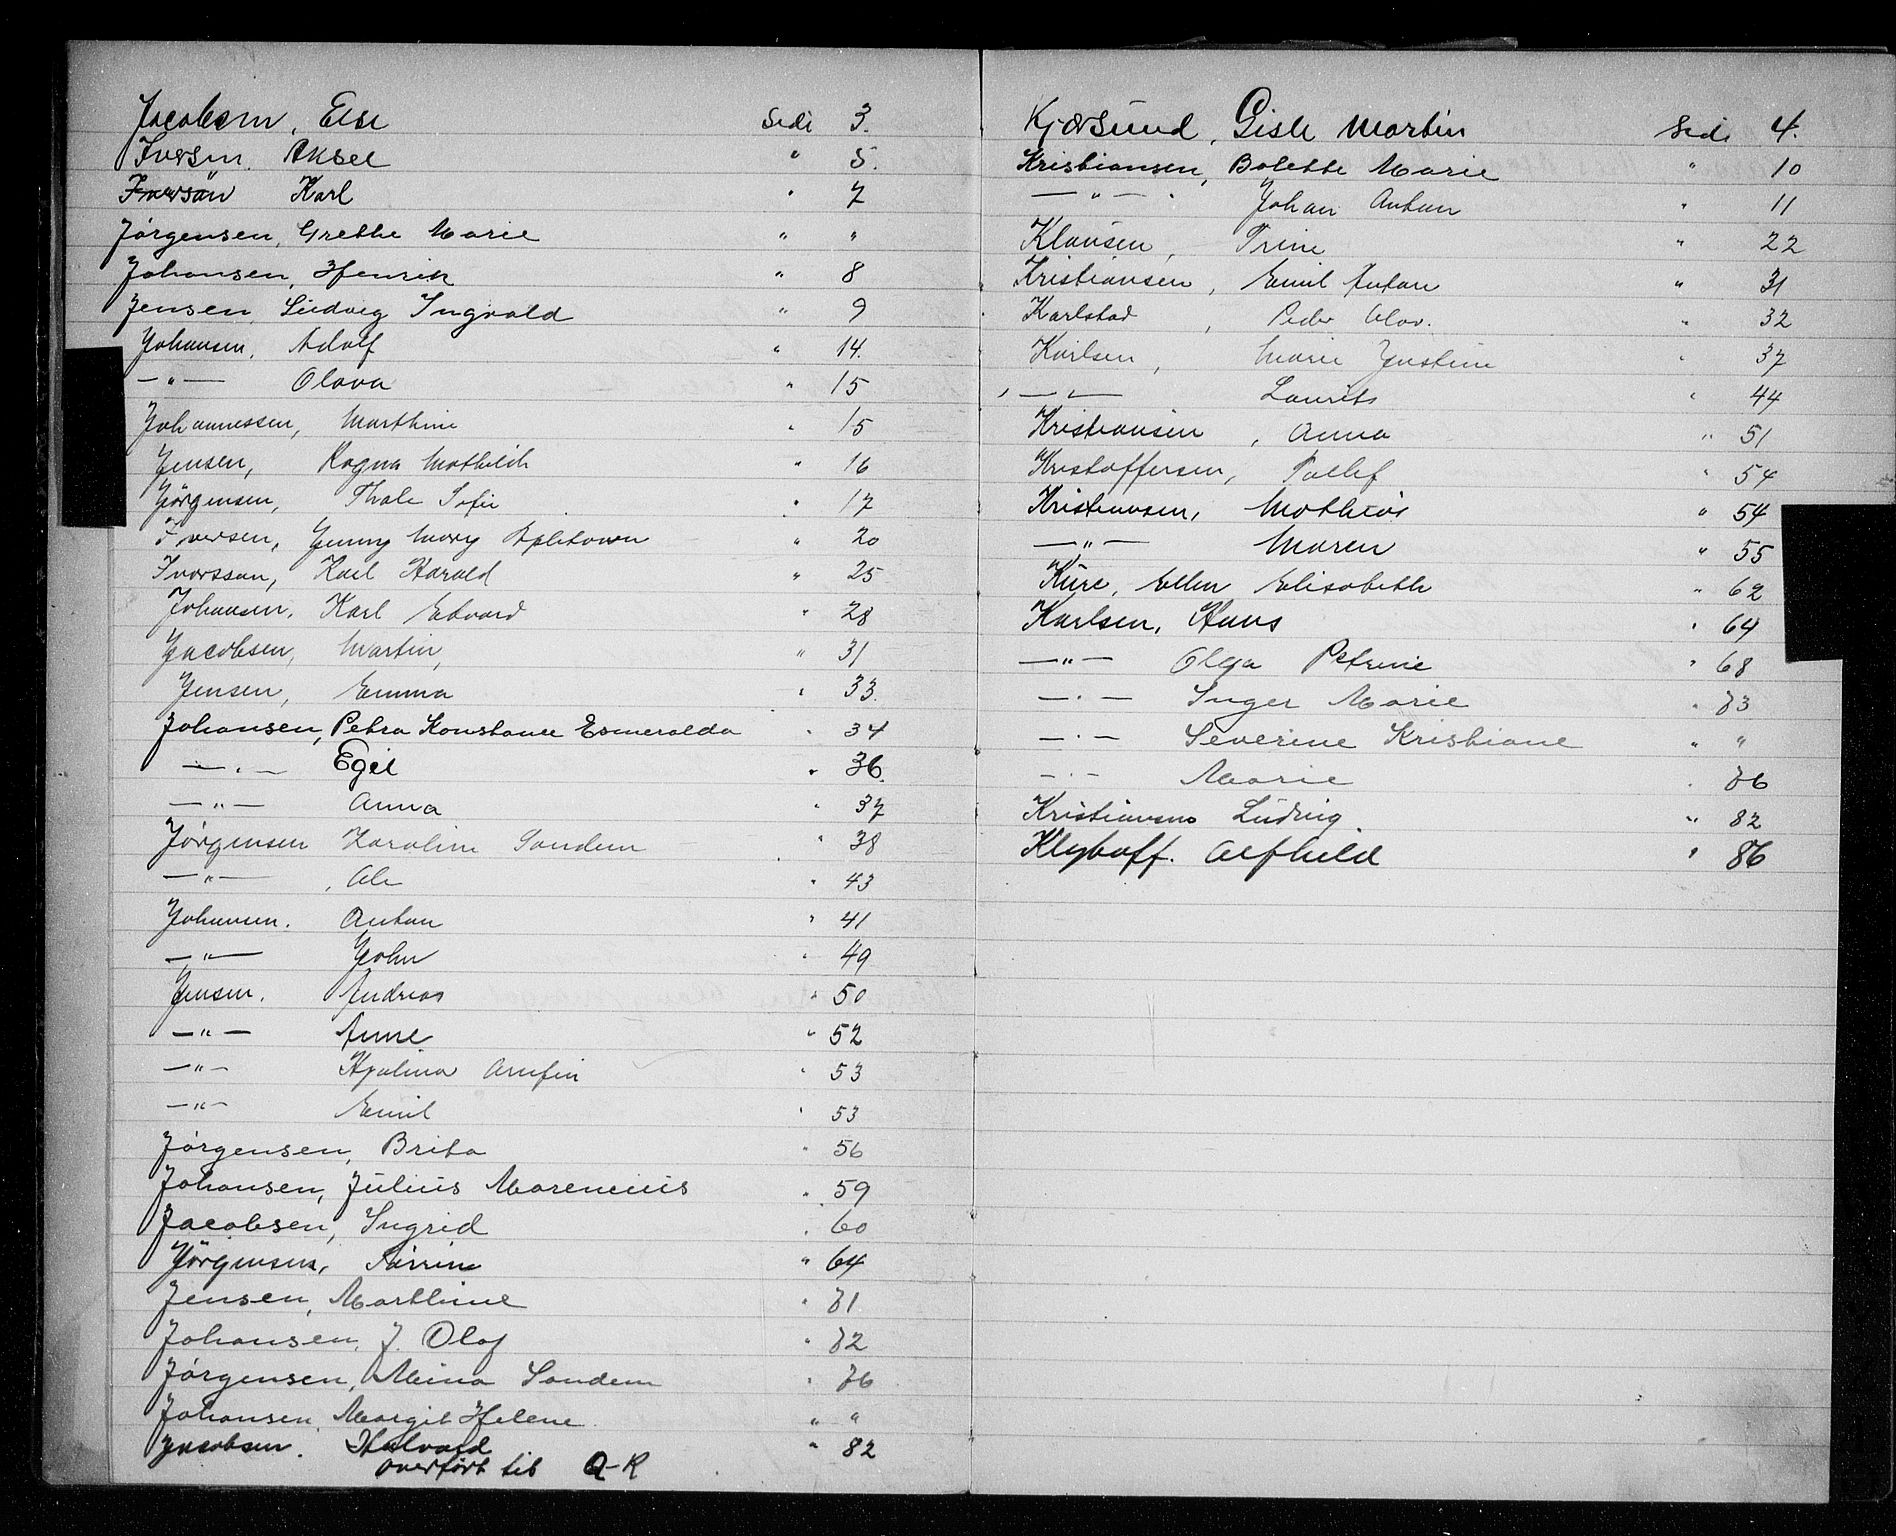 Jacobsen, Else Side 3.
Iversen. Aksel " 5.
Iversön Karl " 7
Jørgensen, Grethe Marie " "
Johansen, Henrik " 8
Jensen, Ludvig Ingvald " 9
Johansen, Adolf " 14.
—"— Olava " 15
Johannessen, Marthine " 15
Jensen, Ragna Mathilde " 16
Jørgensen, Thale Sofie " 17
Iversen, Jenny Mary " 20
Ivarsson, Karl Harald " 25
Johansen, Karl Edvard " 28
Jacobsen, Martin, " 31
Jensen, Emma " 33.
Johansen, Petra Konstance Esmeralda " 34
—"— Egil " 36.
—"— Anna " 37
Jørgensen Karoline Sondem " 38
—"— , Ole " 43
Johansen. Anton " 41
—"— John " 49
Jensen. Andreas " 50
—"— Anne " 52
—"— " 53
—"— Emil " 53
Jørgensen, Brita " 56
Johansen, Julius Marenius " 59
Jacobsen, Ingrid " 60
Jørgensen, " 64
Jensen, Marthine " 71
Johansen, J. Olaf " 72
Jørgensen, Mina Sondem " 76
Johansen Margit Helene " "
Jacobsen. Halvard " 82
overført til Q-R
Kjørsund, Gisle Martin Side 4.
Kristiansen, Bolette Marie " 10
—"— Johan Anton " 11
Klausen, Trine " 22
Kristiansen, Emil Anton " 31
Karlstad, Peder Olav. " 32
Karlsen, Marie Justine " 37
—"— Laurits " 44
Kristiansen, Anna " 51
Kristoffersen, Tollef " 54
Kristiansen, Mathias " 54
—"— Maren " 55
Kure, Ellen Elisabeth " 62
Karlsen, Hans " 64
—"— Olga Petrine " 68
—"— Inger Marie " 73
—"— Severine Kristiane " "
—"— Marie " 76
Kristiansen Ludvig " 82
Klyhoff. Alfhild " 86